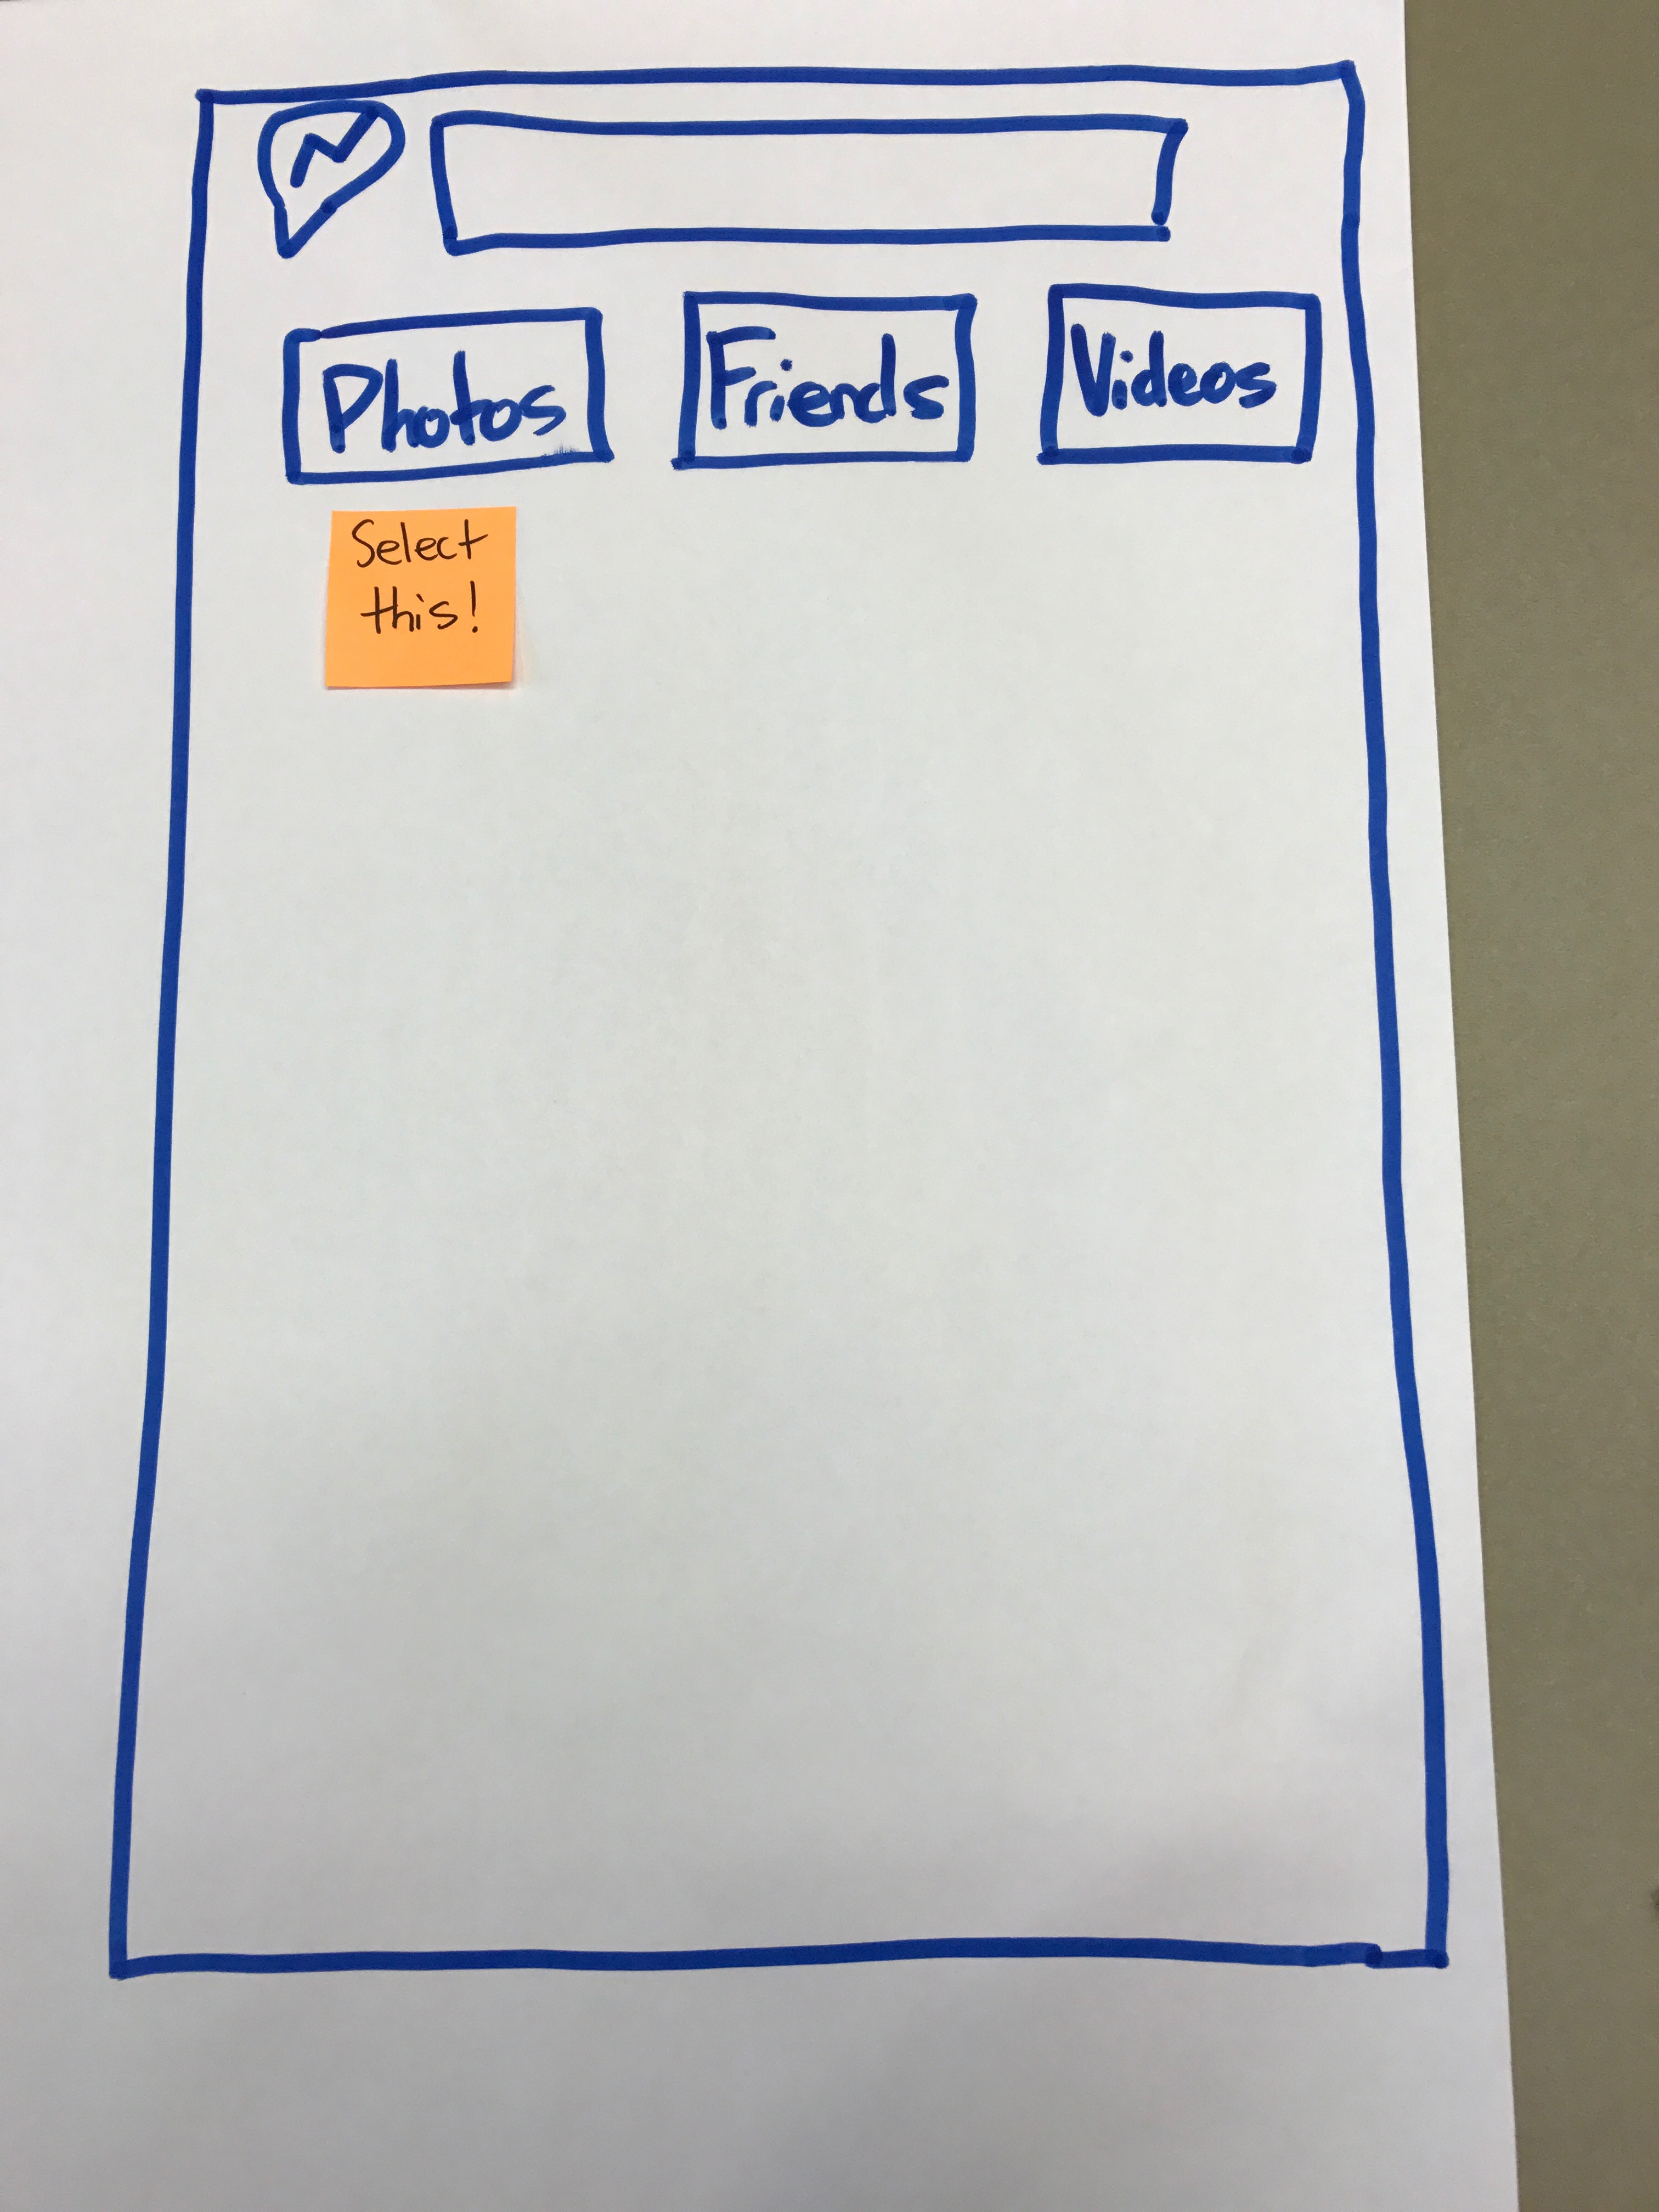 Photos Friends Videos
Select
this!